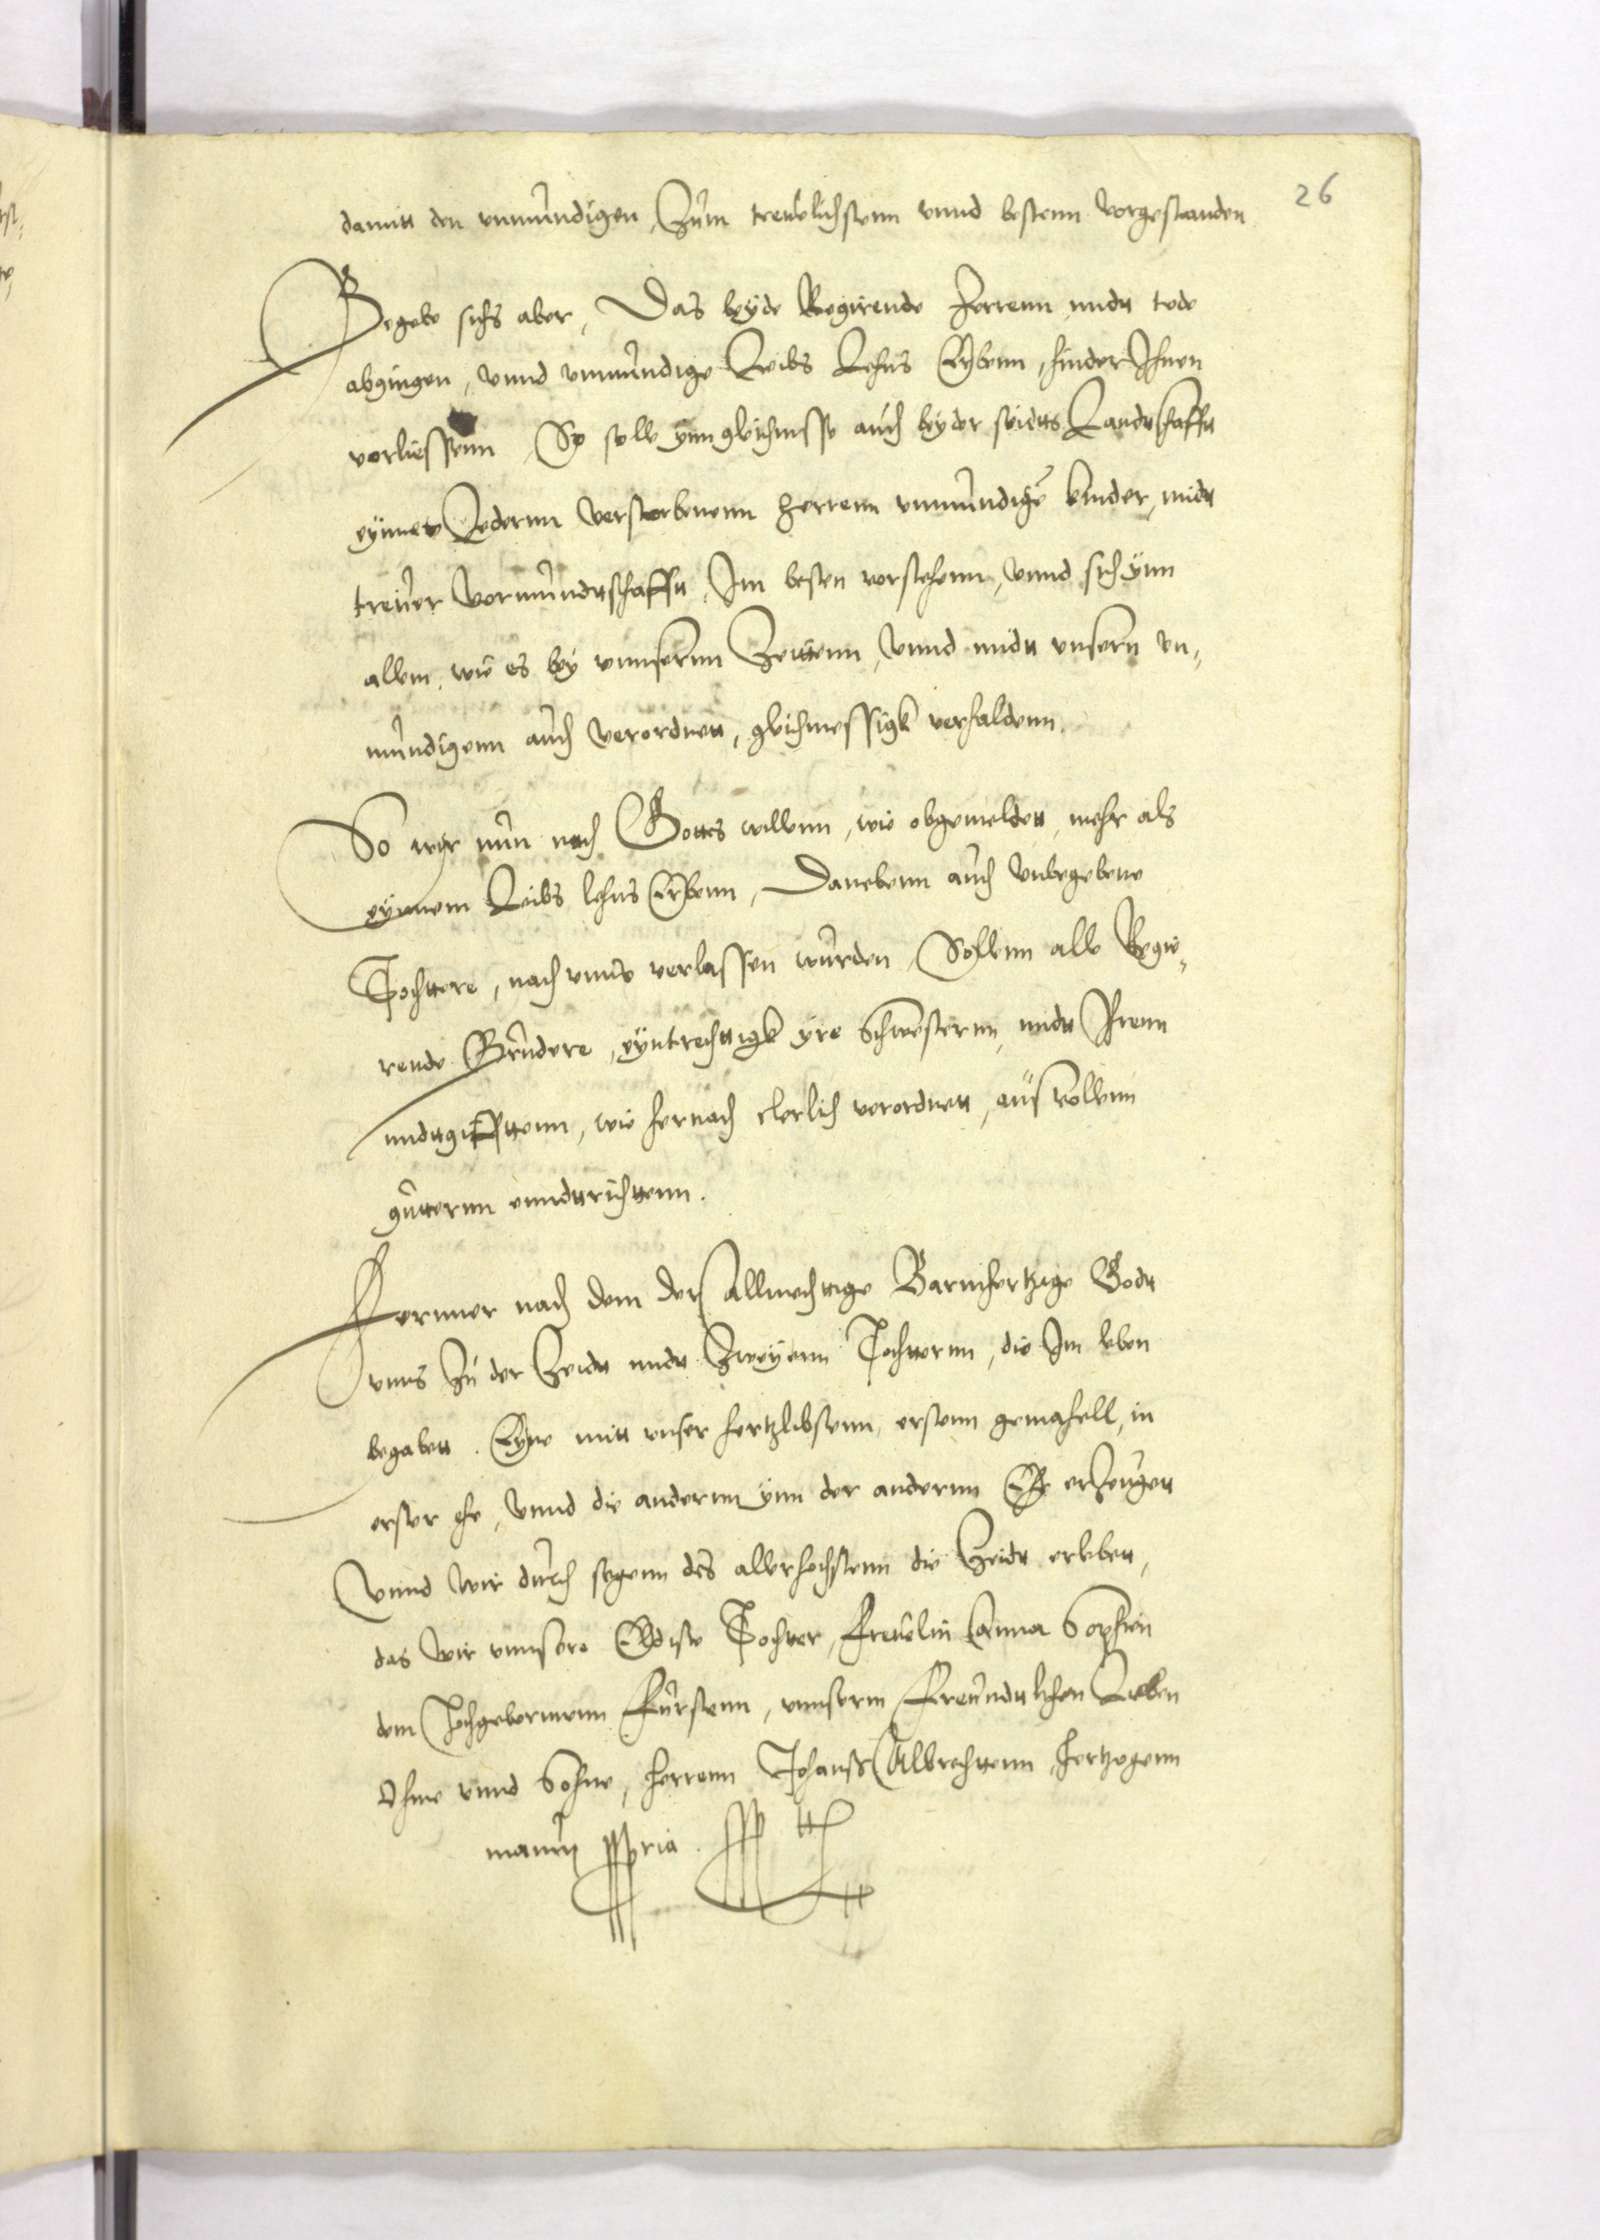 26
damitt den unmundigen, Zum treulichstenn unnd bestenn vorgestanden
Begebe sichs aber, Das beyde Regirende Herrenn midtt tode
abgingen, unnd unmundige Leibs Lehns Erbenn, hinder Ihnen
vorliessenn, So solle ynn gleichnisse auch beyder seidtts Landtschafft
eynnes Jedernn Verstorbenenn Herrenn unmundige kinder, midtt
treuer Vormundttschafft, Im besten vorstehenn, Unnd sich ynn
allem, wie es bey unnsernn Zeittenn, Unnd midtt unsern un,
mundigenn auch Verordnett, gleichmessigk verhaldenn.
So wir nun nach Gottes willenn, wie obgemeldett, mehr als
eynnem Leibs lehns Erbenn, Danebenn auch Unbegebene
Tochttere, nach unns verlassen wurden, Sollenn alle Regie,
rende Brudere, eyntrechttigk yre Schwesternn, midtt Ihrenn
midttgifttenn, wie hernach clerlich verordnett, aus vollenn
gutternn enndttrichttenn.
Fernner nach dem der Allmechttige Barmhertzige Godtt
unns Zu der Zeidtt midtt Zweyenn Tochtternn, die Im leben
begabett. Eyne mitt unser hertzlibstenn, erstenn gemahell, in
erster ehe, Unnd die andernn ynn der andernn Ehe erZeugett
Unnd Wir durch segenn des allerhochstenn die Zeidtt erlebett,
das Wir unnsere Eldiste Tochter, Freulin Anna Sophien
dem Hochgebornnenn Furstenn, unnserm Freundtlichen Lieben
Ohme unnd Sohne, Herrenn Johanss Albrechttenn, Hertzogenn
manu ppria